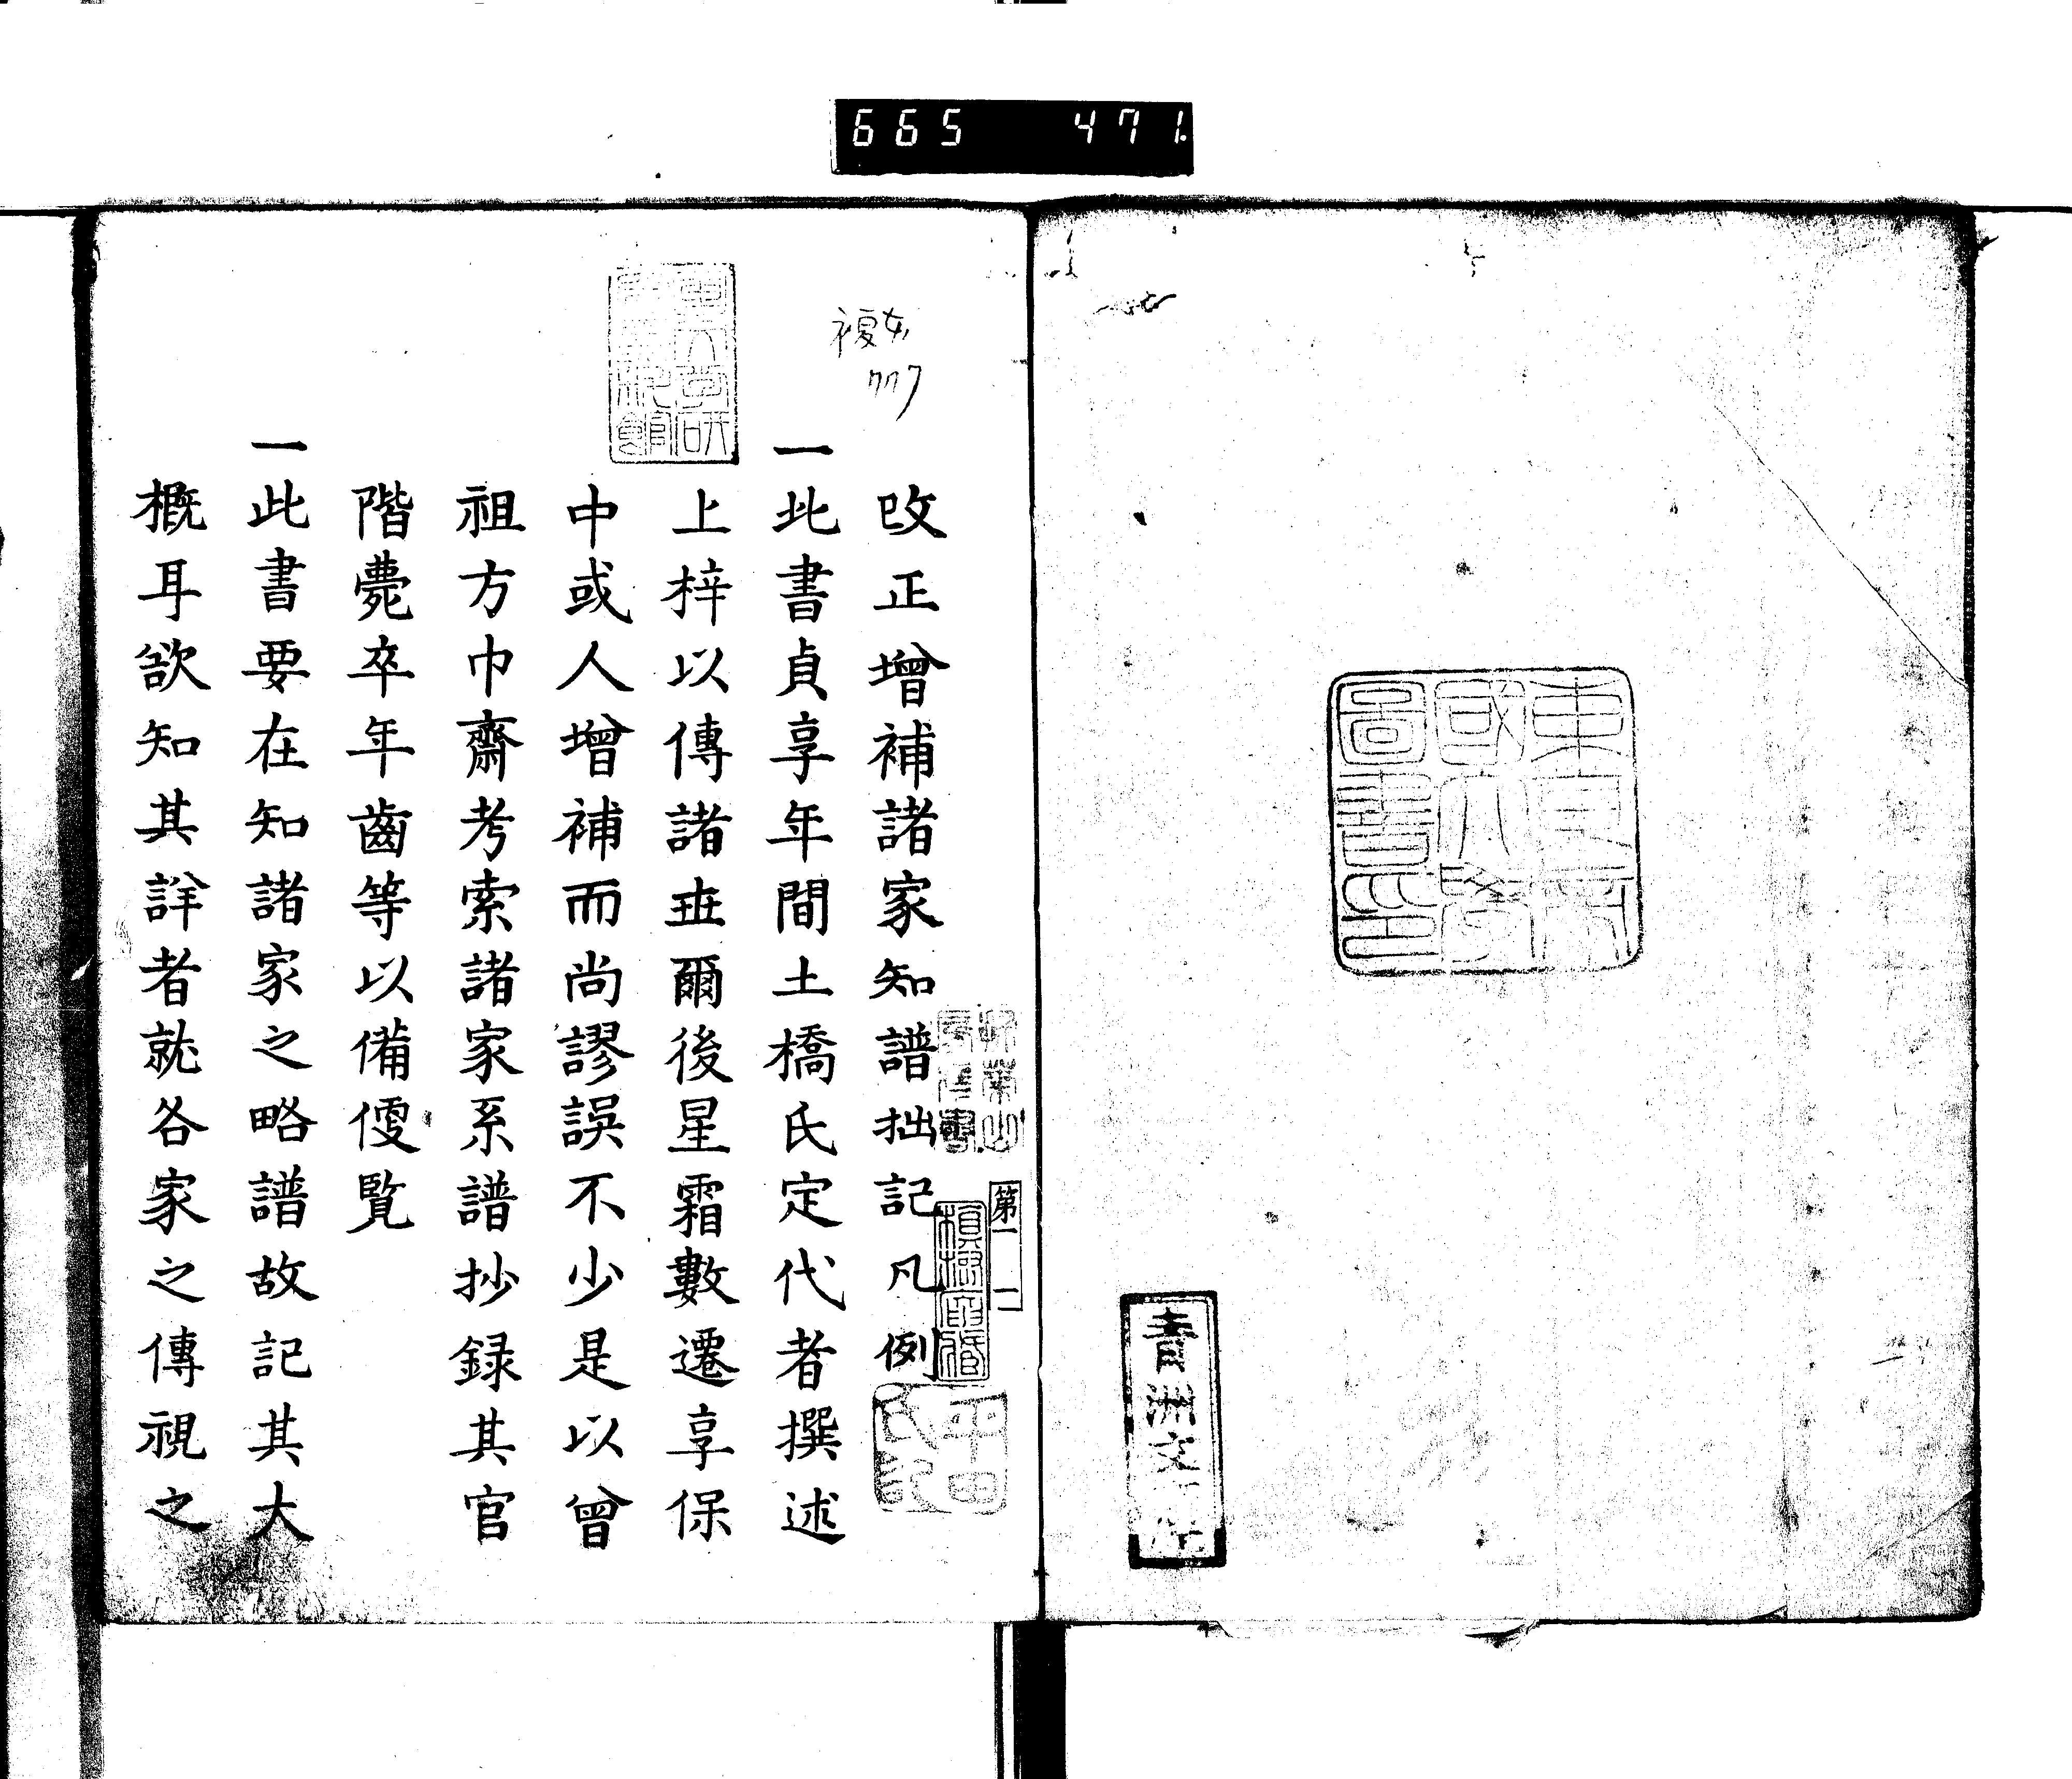 665 471.
東京帝
國大學
圖書印
青洲文
複女
777
第一
平田
氏記
改正增補諸家知譜拙記凡例
一此書貞享年間土橋氏定代者撰述
上梓以傳諸世爾後星霜數遷享保
中或人增補而尚謬誤不少是以曾
祖方巾齋考索諸家系譜抄錄其官
階薨卒年齒等以備便覽
一此書要在知諸家之略譜故記其大
概耳欲知其詳者就各家之傳視之